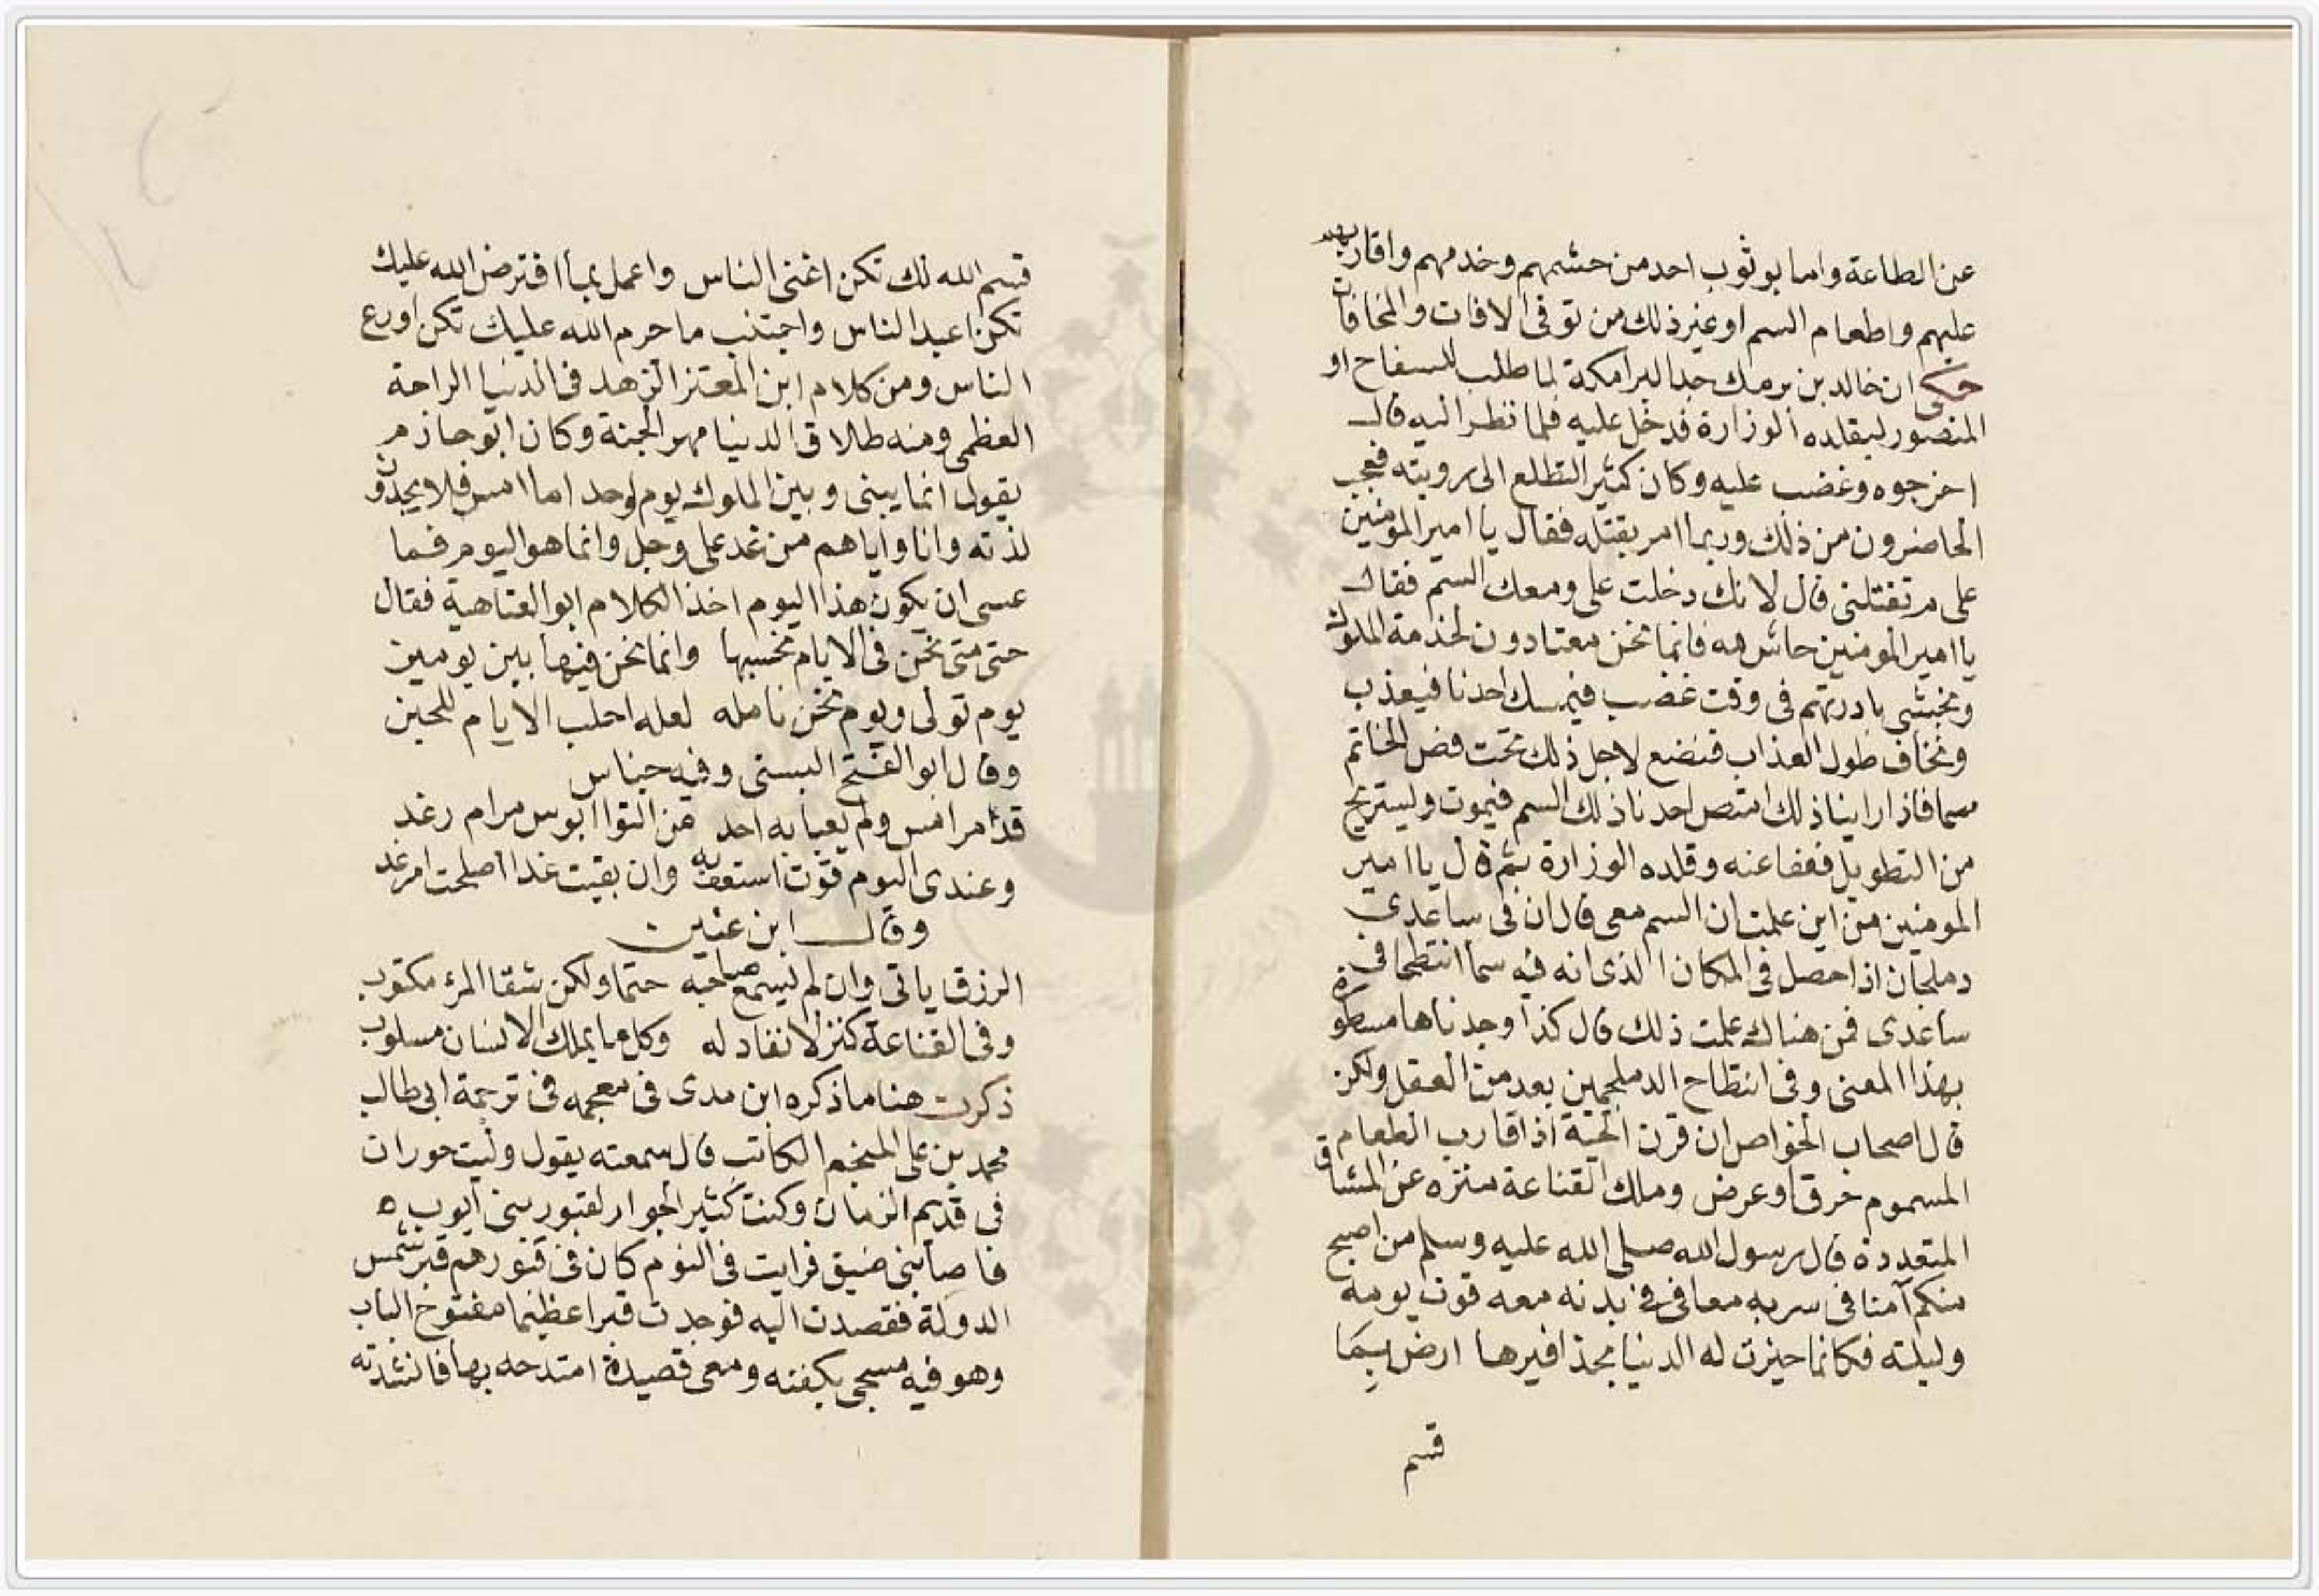 عن الطاعة واما بوثوب احد من حشمهم وخدمهم واقاربهم
عليهم واطعام السم او غير ذلك من توقى الافات والمخافات
حكى ان خالد بن برمك جد البرامكة لما طلب للسفاح او
المنصور ليقلده الوزارة فدخل عليه فلما نظر اليه قال
اخرجوه وغضب عليه وكان كثير التطلع الى رويته فعجب
الحاضرون من ذلك وربما امر بقتله فقال يا امير المومنين
على م تقتلنى قال لانك دخلت على ومعك السم فقال
يا امير المومنين حاش لله فانما نحن معتادون لخدمة الملوك
ونخشى بادرتهم فى وقت غضب فيمسك احدنا فيعذب
ونخاف طول العذاب فنضع لاجل ذلك تحت فص الخاتم
سما فاذا راينا ذلك امتص احدنا ذلك السم فيموت وليستريح
من التطويل فعفا عنه وقلده الوزارة ثم قال يا امير
المومنين من اين علمت ان السم معى قال ان فى ساعدى
دملجان اذا حصل فى المكان الذى انه فيه سما انتطحا فى
ساعدى فمن هناك علمت ذلك قال كذا وجدناها مسطورة
بهذا المعنى وفى انتطاح الدملجين بعد من العقل ولكن
قال اصحاب الخواص ان قرن الحية اذا قارب الطعام
المسموم خرق او عرض وملك القناعة منزه عن المشاق
المتعددة قال رسول الله صلى الله عليه وسلم من اصبح
منكم آمنا فى سربه معافى فى بدنه معه قوت يومه
وليلته فكانما حيزت له الدنيا بحذافيرها ارض بما
قسم
قسم الله لك تكن اغنى الناس واعمل بما افترض الله عليك
تكن اعبد الناس واجتنب ما حرم الله عليك تكن اورع
الناس ومن كلام ابن المعتز الزهد فى الدنيا الراحة
العظمى ومنه طلاق الدنيا مهر الجنة وكان ابو حازم
يقول انما بينى وبين الملوك يوم واحد اما امس فلا يجدون
لذته وانا واياهم من غد على وجل وانما هو اليوم فما
عسى ان يكون هذا اليوم اخذ الكلام ابو العتاهية فقال
حتى متى نحن فى الايام نحسبها وانما نحن فيها بين يومين
يوم تولى ويوم نحن نامله لعله اجلب الايام للحين
وقال ابو الفتح البستى وفيه جناس
قد مر امس ولم يعبا به احد من التوا ابوس مرام رغد
وعندى اليوم قوت استعف به وان بقيت غدا اصلحت امر غد
وقال ابن عنين
الرزق ياتى وان لم يسع صاحبه حتما ولكن شقا المرء مكتوب
وفى القناعة كنز لا نفاد له وكل ما يملك الانسان مسلوب
ذكرت هنا ما ذكره ابن مدى فى معجمه فى ترجمة ابى طالب
محمد بن على المنجم الكاتب قال سمعته يقول وليت حوران
فى قديم الزمان وكنت كثير الجوار لقبور بنى ايوب ه
فاصابنى ضيق فرايت فى النوم كان فى قبورهم قبر شمس
الدولة فقصدت اليه فوجدت قبرا عظيما مفتوح الباب
وهو فيه مسجى بكفنه ومعى قصيدة امتدحه بها فانشدته